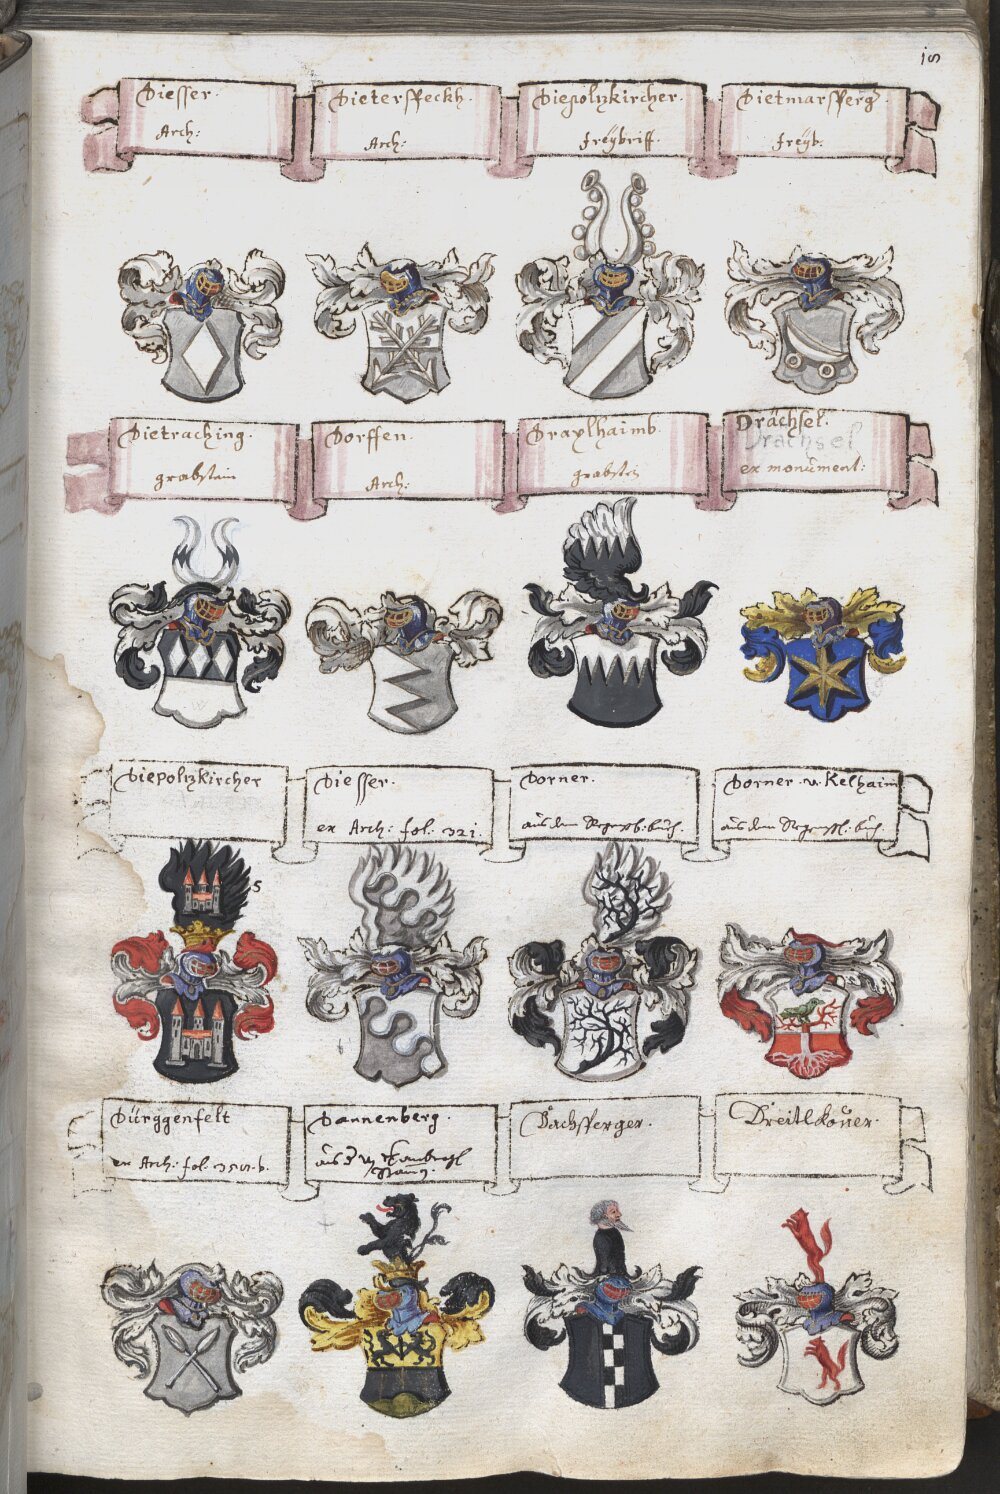 18
Diesser.
Arch:
Dietersteckh.
Arch:
Diepoltzkircher.
freÿbriff.
Dietmarsperg.
freÿb:
Dietraching.
grabstain
Dorffen.
Arch:
Draxlhaimb.
grabstei
Drächsel.
Drachsel
ex monument:
Diepoltzkircher
Diesser.
ex Arch: fol. 321.
Dorner.
aus dem buch.
Dorner v. Kelhaim
aus dem buch.
5
Dürggenfelt
ex Arch: fol.
Dannenberg.
Dachsperger.
Dreitlkouer.